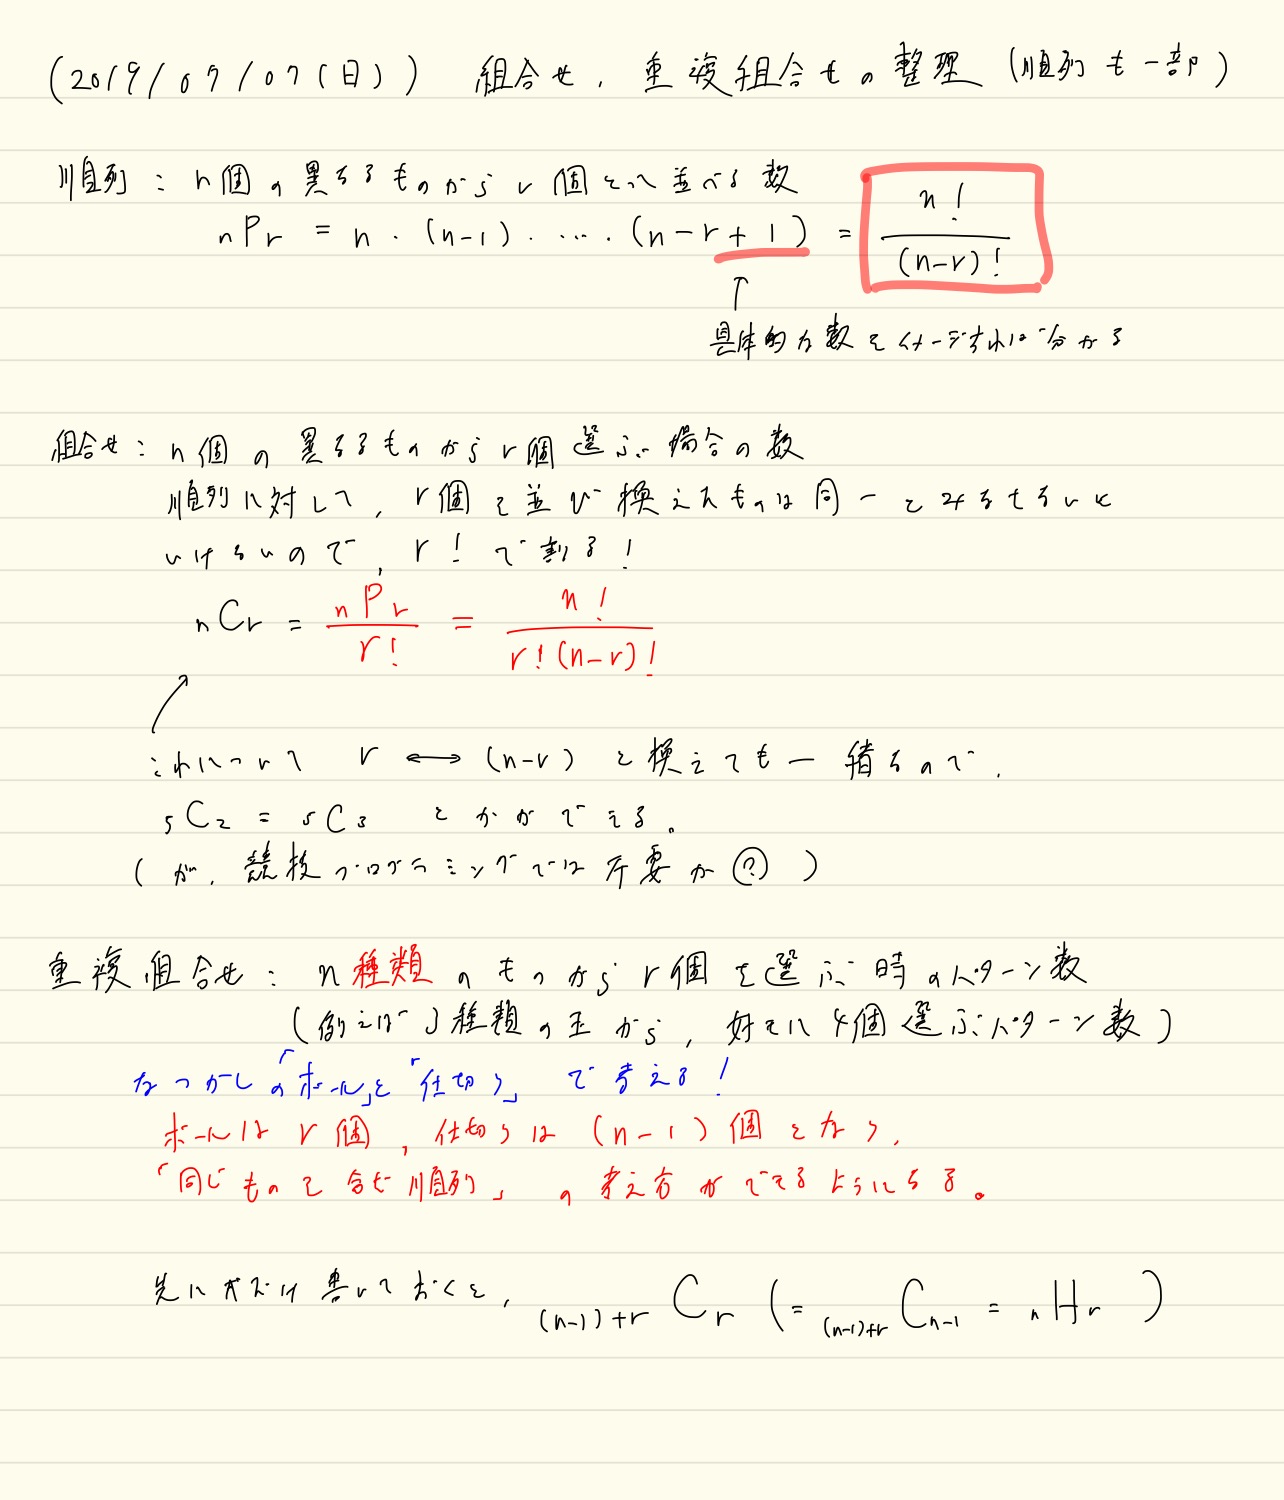 (2019/07/07(日)) 組合せ, 重複組合せの整理 (順列も一部)
順列: n個の異なるものからr個とって並べる数
nPr = n・(n-1)・…・(n-r+1) = n!/(n-r)!
↑
具体的な数をイメージすれば分かる
組合せ: n個の異なるものからr個選ぶ場合の数
順列に対して, r個を並び換えたものは同一とみなさないと
いけないので, r!で割る!
nCr = nPr/r! = n!/r!(n-r)!
これについて r ⟷ (n-r) と換えても一緒なので,
5C2 = 5C3 とかができる。
(が, 競技プログラミングでは不要か?)
重複組合せ: n種類のものからr個を選ぶ時のパターン数
(例えば3種類の玉から, 好きに4個選ぶパターン数)
なつかしの「ボール」と「仕切り」で考える!
ボールはr個, 仕切りは(n-1)個となり,
「同じものを含む順列」の考え方ができるようになる。
先に式だけ書いておくと, (n-1)+rCr (= (n-1)+rCn-1 = nHr)